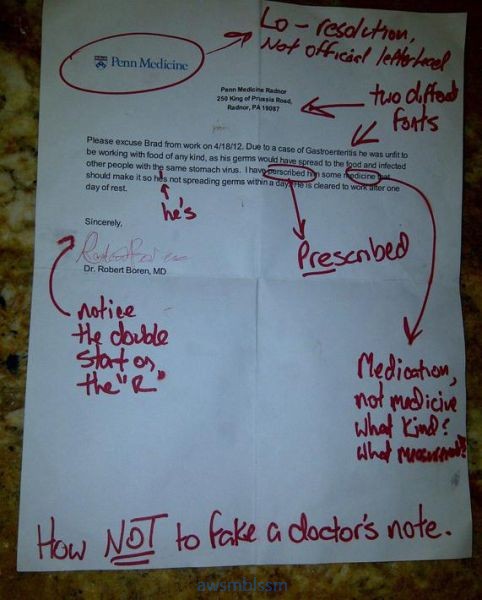 Lo-resolution,
Not official letterhead
Penn Medicine
Penn Medicine Radnor
250 King of Prussia Road,
Radnor, PA 19087
two different
fonts
Please excuse Brad from work on 4/18/12. Due to a case of Gastroenteritis he was unfit to
be working with food of any kind, as his germs would have spread to the food and infected
other people with the same stomach virus. I have perscribed him some medicine that
should make it so hes not spreading germs within a day. He is cleared to work after one
day of rest.
he's
Sincerely,
Prescribed
Dr. Robert Boren, MD
notice
the double
start on
the "R"
Medication,
not medicive
What kind?
What measurement?
How NOT to fake a doctor's note.
awsmblssm